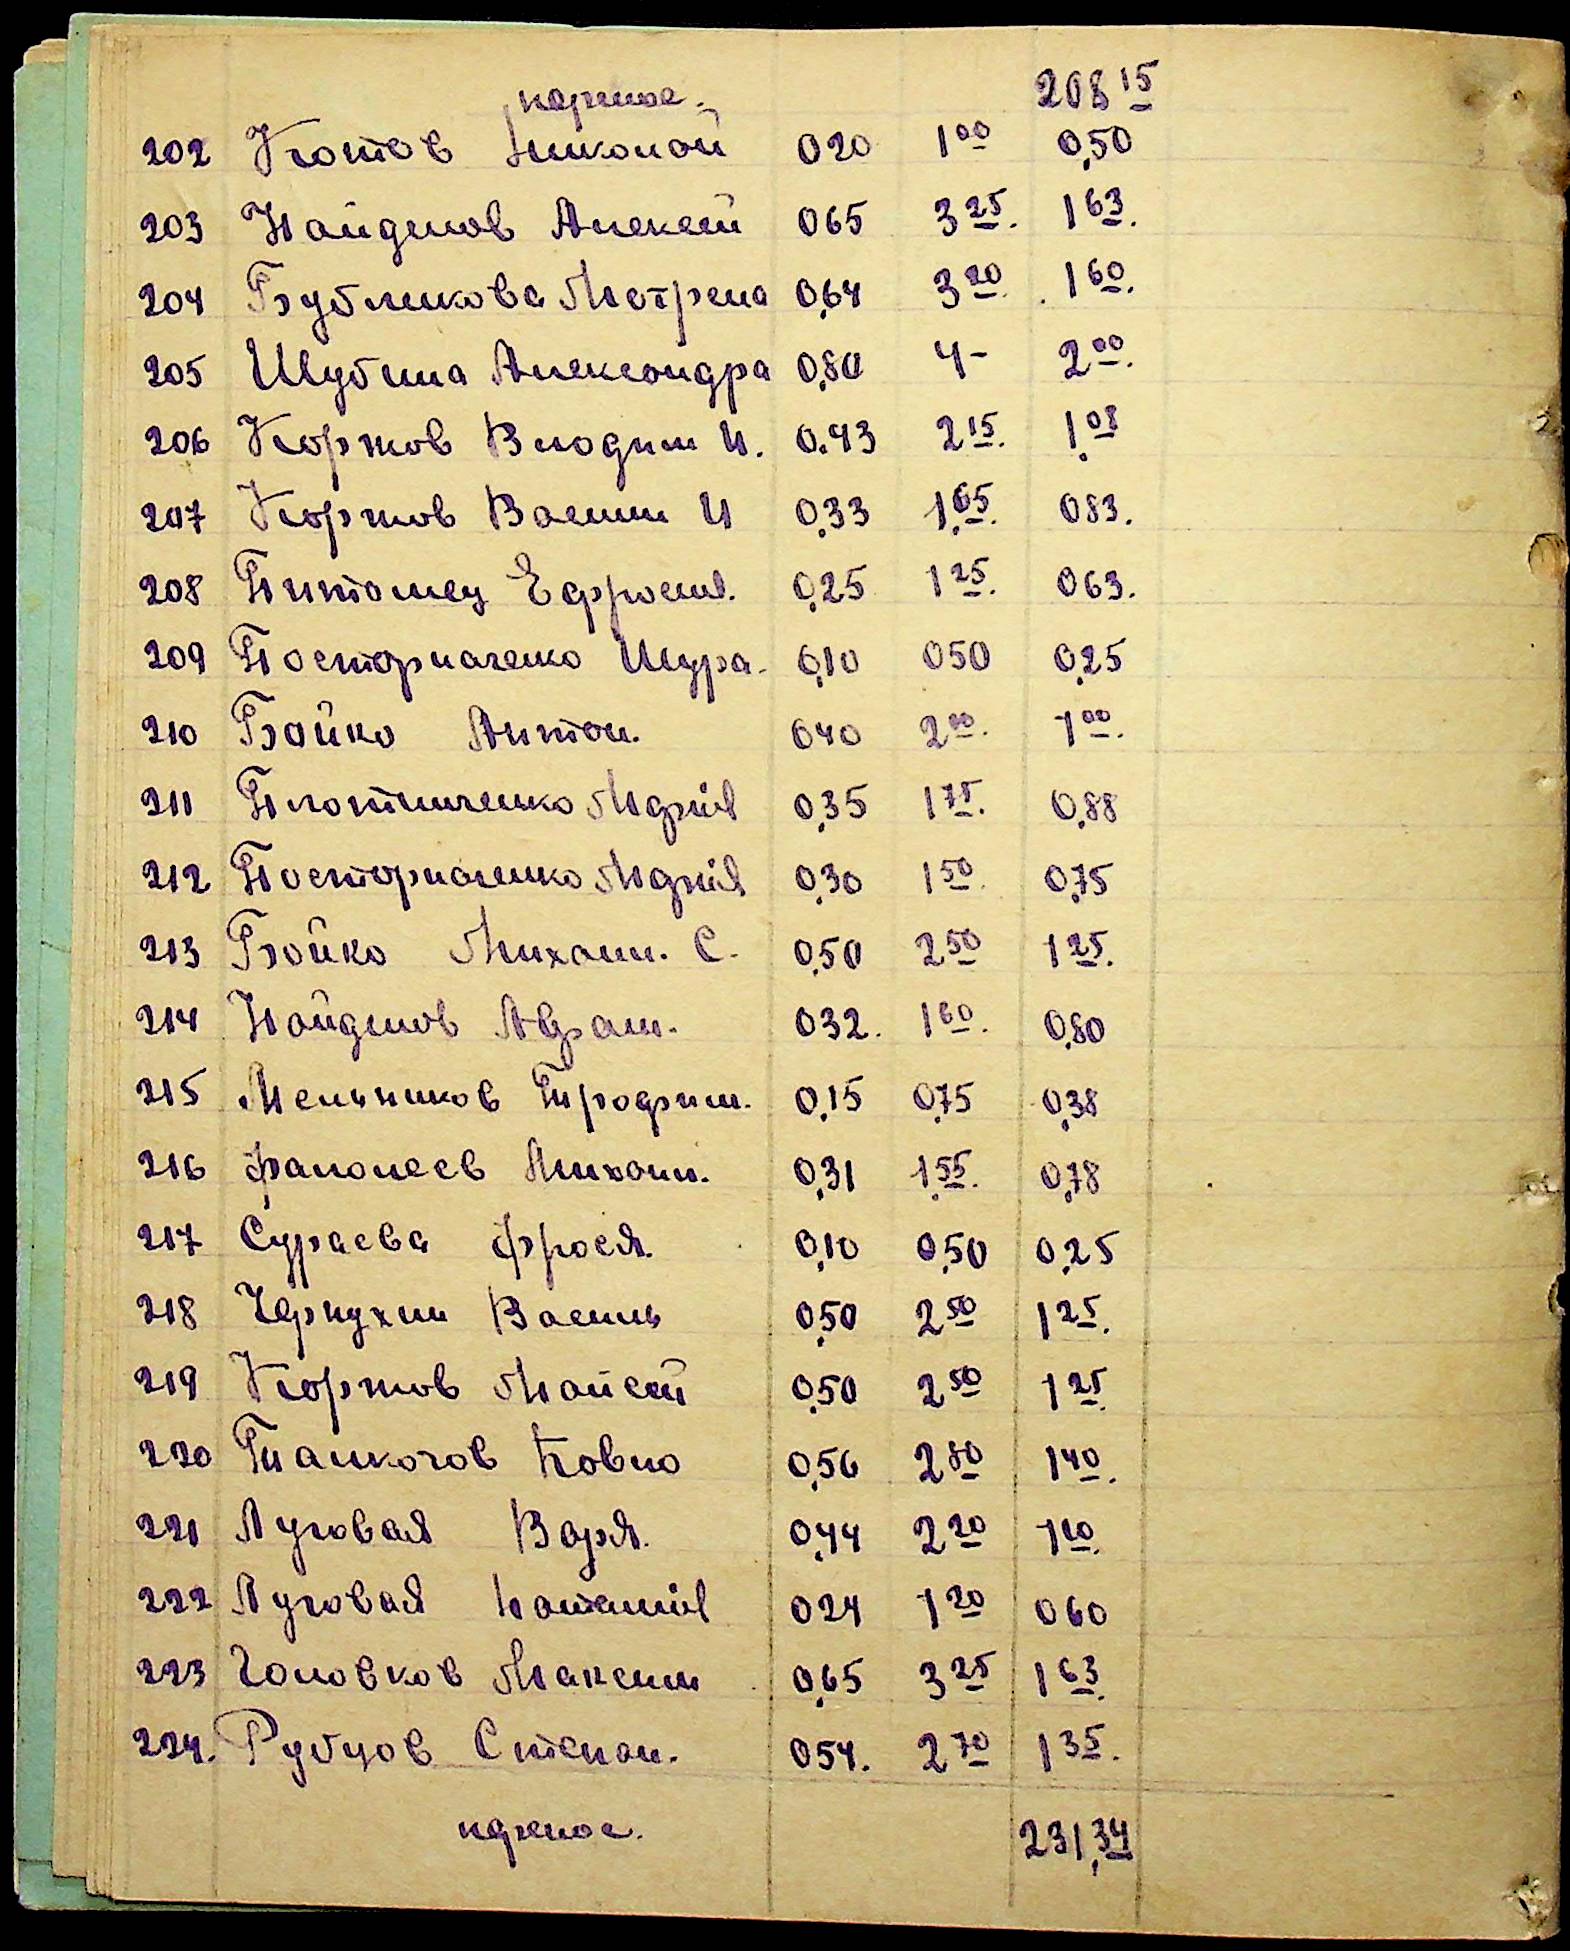 перенос. 208 15
202 Котов Николай 0 20 1 00 0,50
203 Найденов Алексей 0 65 3 25. 1 63.
204 Бубликова Мотрена 0,64 3 20. 1 60.
205 Шубина Александра 0,80 4- 2 00.
206 Коржов Владим И. 0.43 2 15. 1 08
207 Коржов Васили И 0,33 1,65. 0 83.
208 Питомец Ефросин. 0,25 1 25. 0 63.
209 Посторначенко Шура. 0,10 0 50 0,25
210 Бойко Антон. 0 40 2 00. 1 00.
211 Плотниченко Мария 0,35 1 75. 0,88
212 Посторначенко Мария 0,30 1 50. 0,75
213 Бойко Михаил. С. 0,50 2 50 1 25.
214 Найденов Абрам. 0 32. 1 60. 0,80
215 Мельников Трофим. 0,15 0,75 0,38
216 Фалолеев Михаил. 0,31 1,55. 0,78
217 Сураева Фрося. 0,10 0,50 0,25
218 Черпухин Василь 0,50 2 50 1 25.
219 Коржов Моисей 0,50 2 50 1 25.
220 Павло 0,56 2 80 1 40.
221 Луговая Варя. 0,44 2 20 1 10.
222 Луговая Наталия 0 24 1 20 0 60
223 Головков Максим 0,65 3 25 1 63.
224. Рубцов Степан. 0 54. 2 70 1 35.
перенос. 231,34